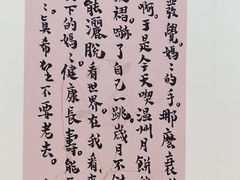 發覺媽媽的手。那麼衰
啊。于是今天喫温州月餅
褶嚇了自己一跳歲月不
能灑脫看世界在我看
下的媽媽健康長壽。能
真希望不要老去。